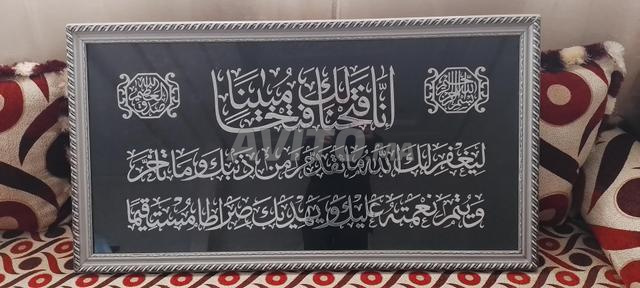 إِنَّا فَتَحْنَا لَكَ فَتْحًا مُبِينًا
لِيَغْفِرَ لَكَ اللَّهُ مَا تَقَدَّمَ مِنْ ذَنْبِكَ وَمَا تَأَخَّرَ
وَيُتِمَّ نِعْمَتَهُ عَلَيْكَ وَيَهْدِيَكَ صِرَاطًا مُسْتَقِيمًا